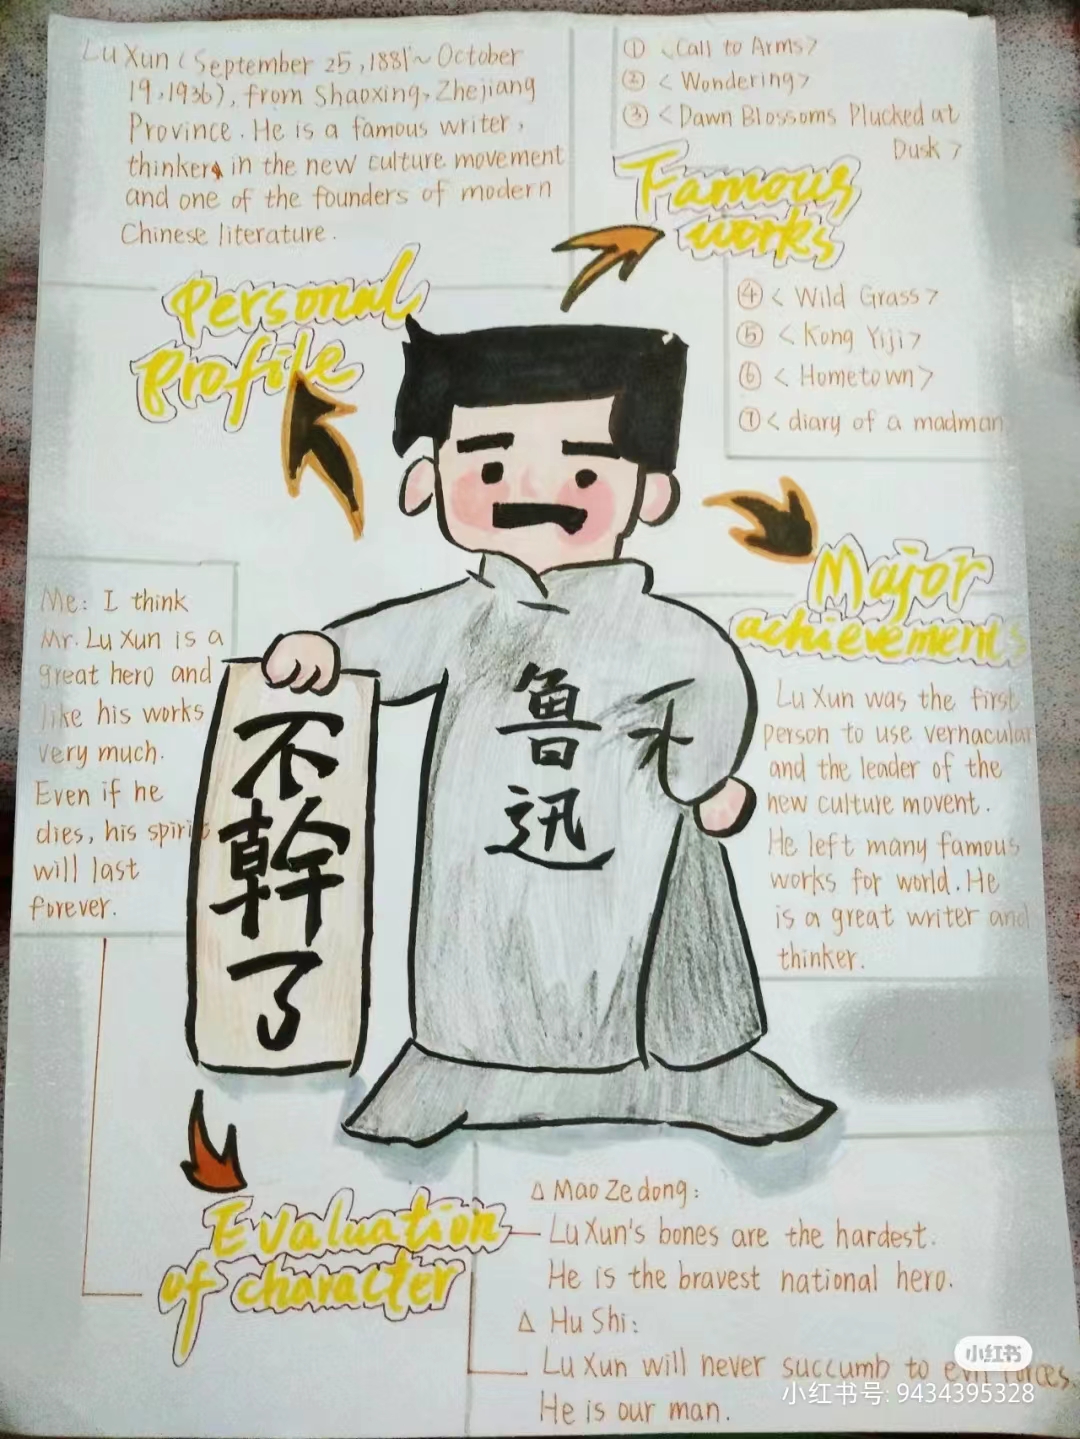 Lu Xun (September 25, 1881~ October
19, 1936), from Shaoxing, Zhejiang
Province. He is a famous writer,
thinker, in the new culture movement
and one of the founders of modern
Chinese literature.
Personal
Profile
① <Call to Arms>
② < Wondering>
③ <Dawn Blossoms Plucked at
Dusk >
Famous
works
④ < Wild Grass>
⑤ < Kong Yiji>
⑥ < Hometown>
⑦ < diary of a madman
Major
achievements
Lu Xun was the first
person to use vernacular
and the leader of the
new culture movent.
He left many famous
works for world. He
is a great writer and
thinker.
Me: I think
Mr. Lu Xun is a
great hero and
like his works
very much.
Even if he
dies, his spirit
will last
forever.
不
幹
了
魯
迅
Evaluation
of character
Δ Mao Zedong:
Lu Xun's bones are the hardest.
He is the bravest national hero.
Δ Hu Shi:
Lu Xun will never succumb to evil forces.
He is our man.
小红书
小红书号: 9434395328